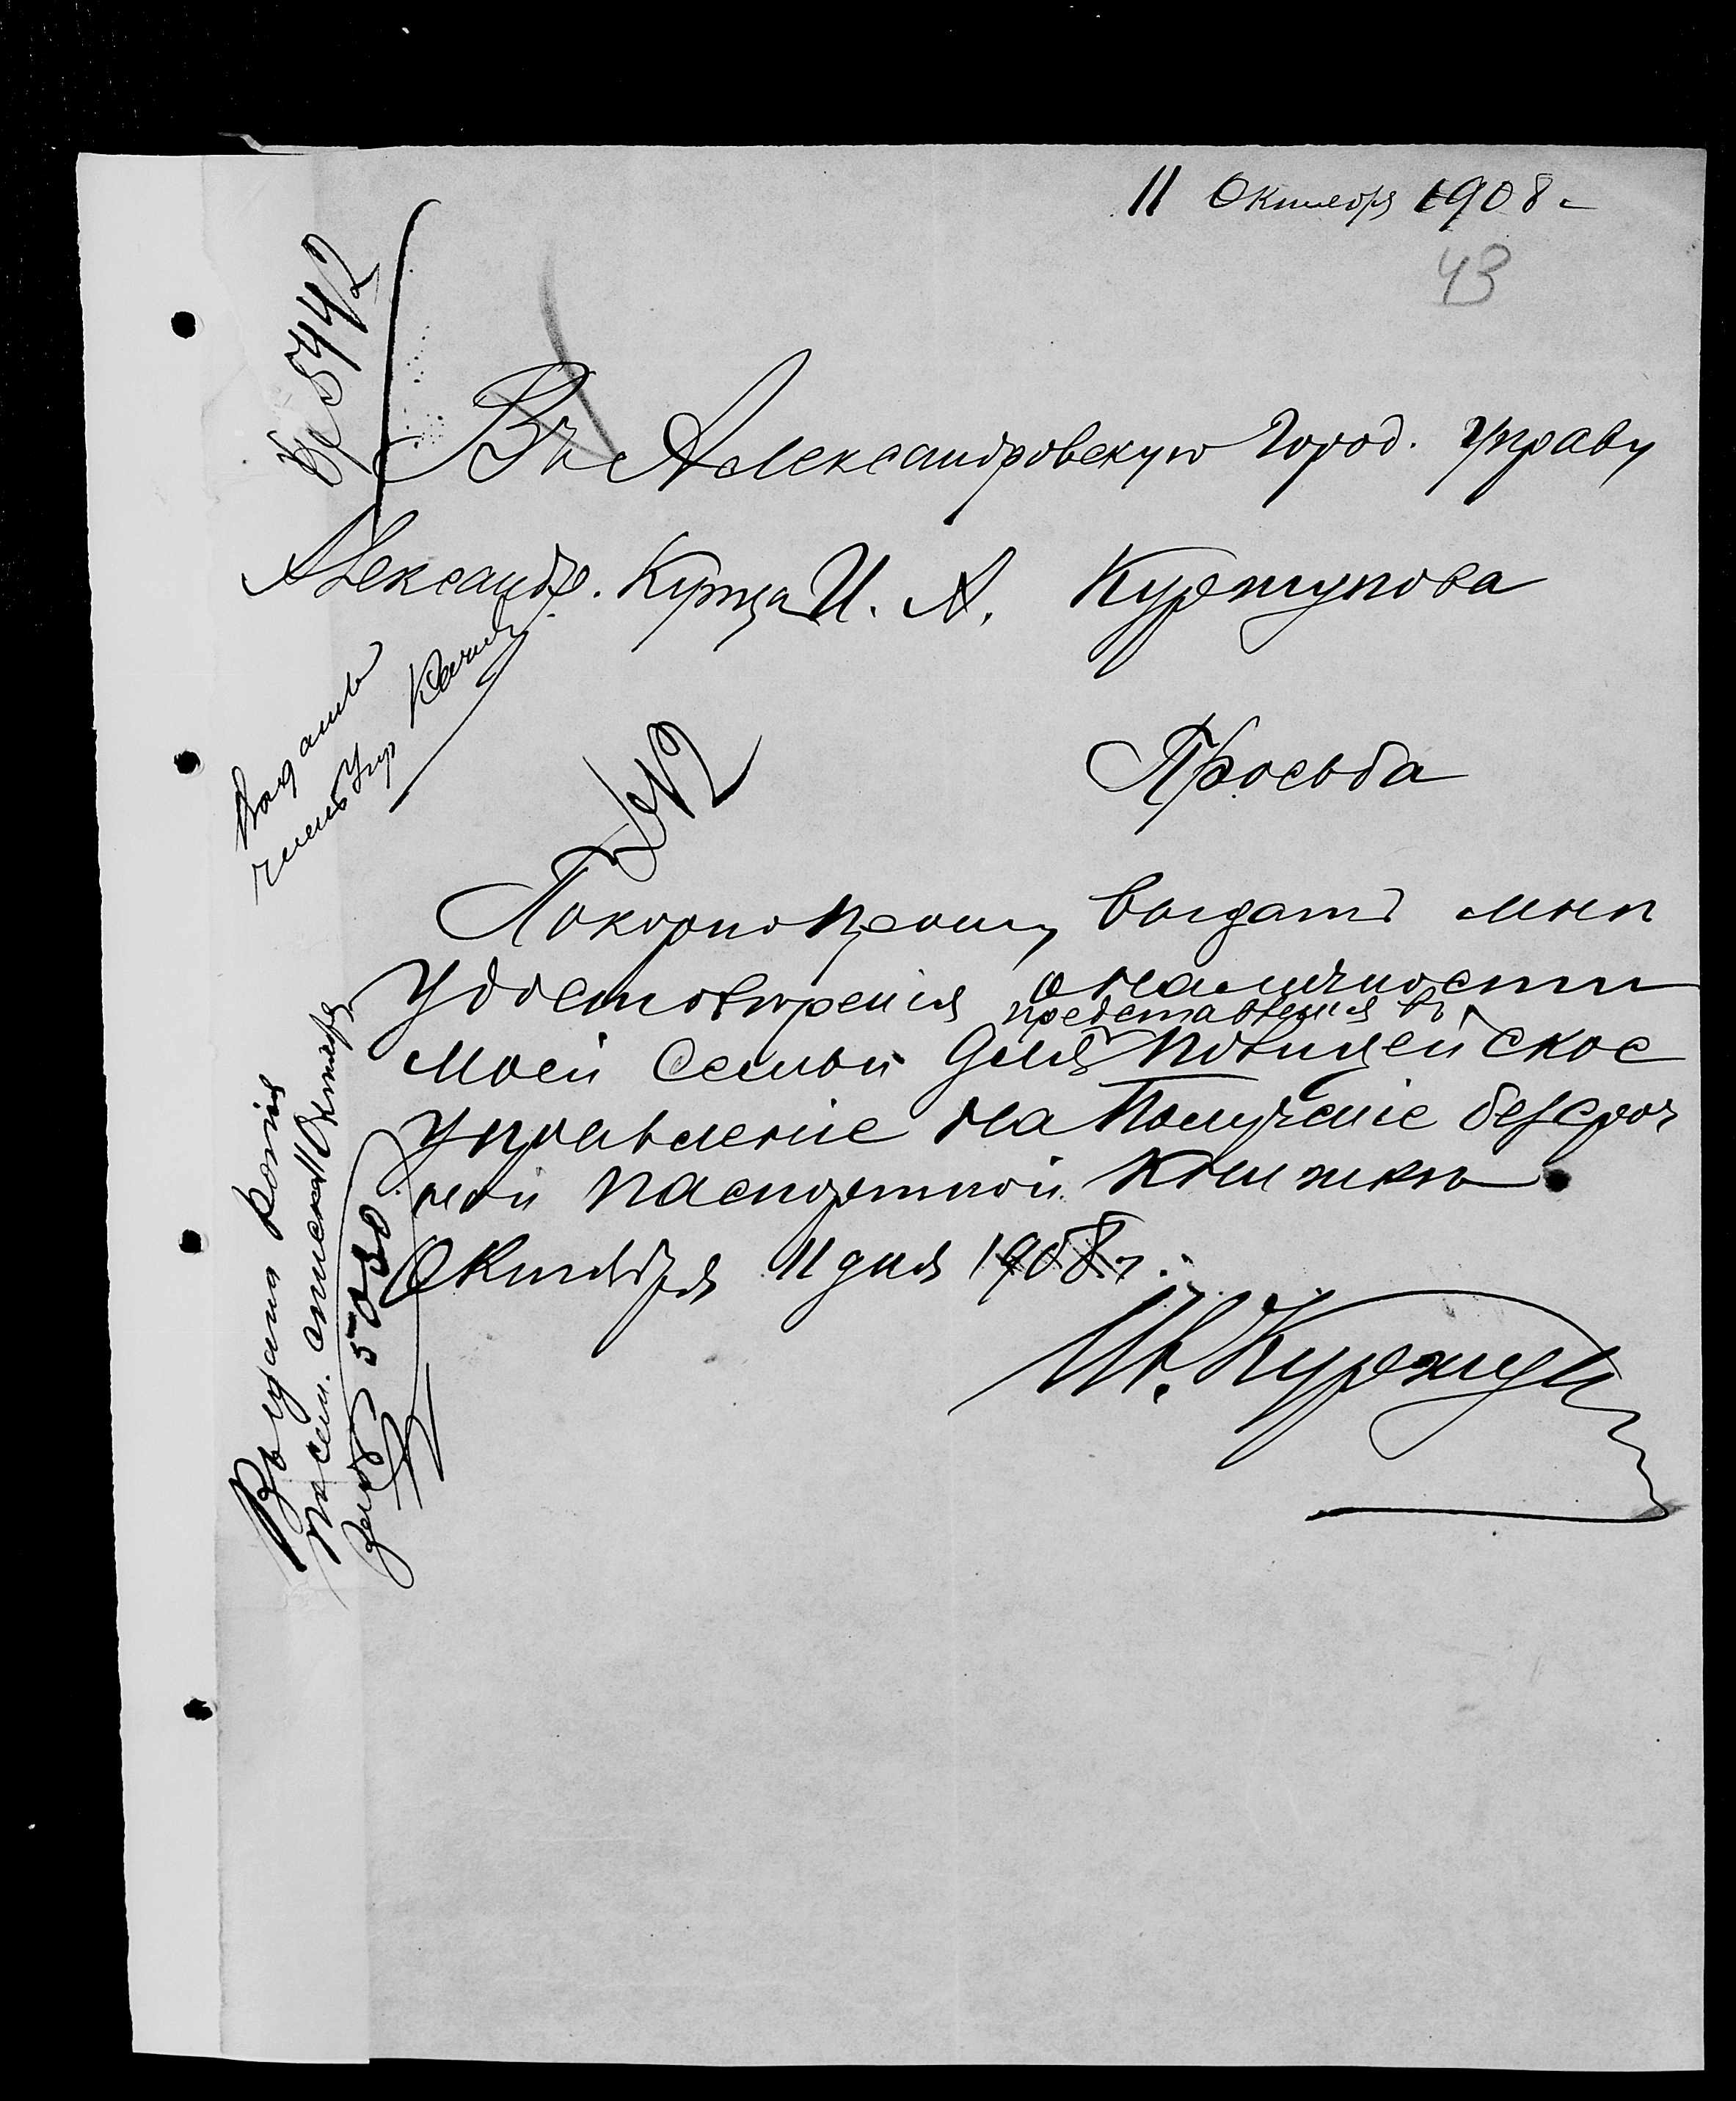 11 Октября 1908 г
43
№ 5442
Въ Александровскую Город. Управу
Александр. Купца И. А. Куржупова
Выдать
членъ Упр
Просьба
Покорно прошу выдать мнѣ
Удостоверения о наличности
представления въ
моей Семьи для Полицейское
Управление на Получение безсроч
ной паспортной Книжки.
Октября 11 дня 1908 г.
И. Куржуп
Выдана копия
посем. списка 11 Октября
за № 5030